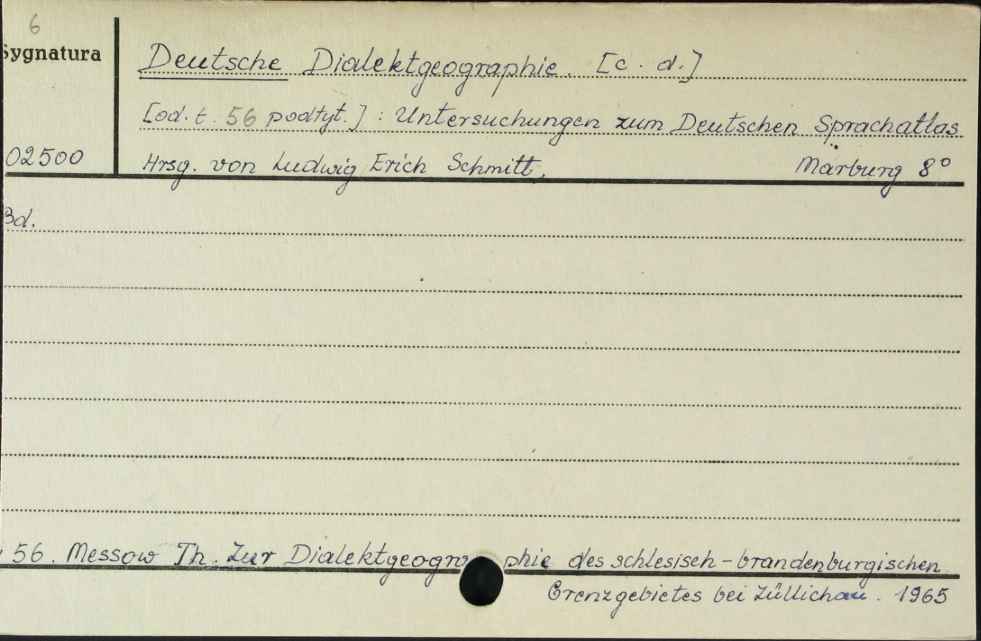 6
Sygnatura
Deutsche Dialektgeographie. [c. d.]
[od. t. 56 podtyt.] : Untersuchungen zum Deutschen Sprachatlas
02500
Hrsg. von Ludwig Erich Schmitt, Marburg 8°
Bd.
56. Messow Th. Zur Dialektgeographie des schlesisch-brandenburgischen
Grenzgebietes bei Züllichau. 1965